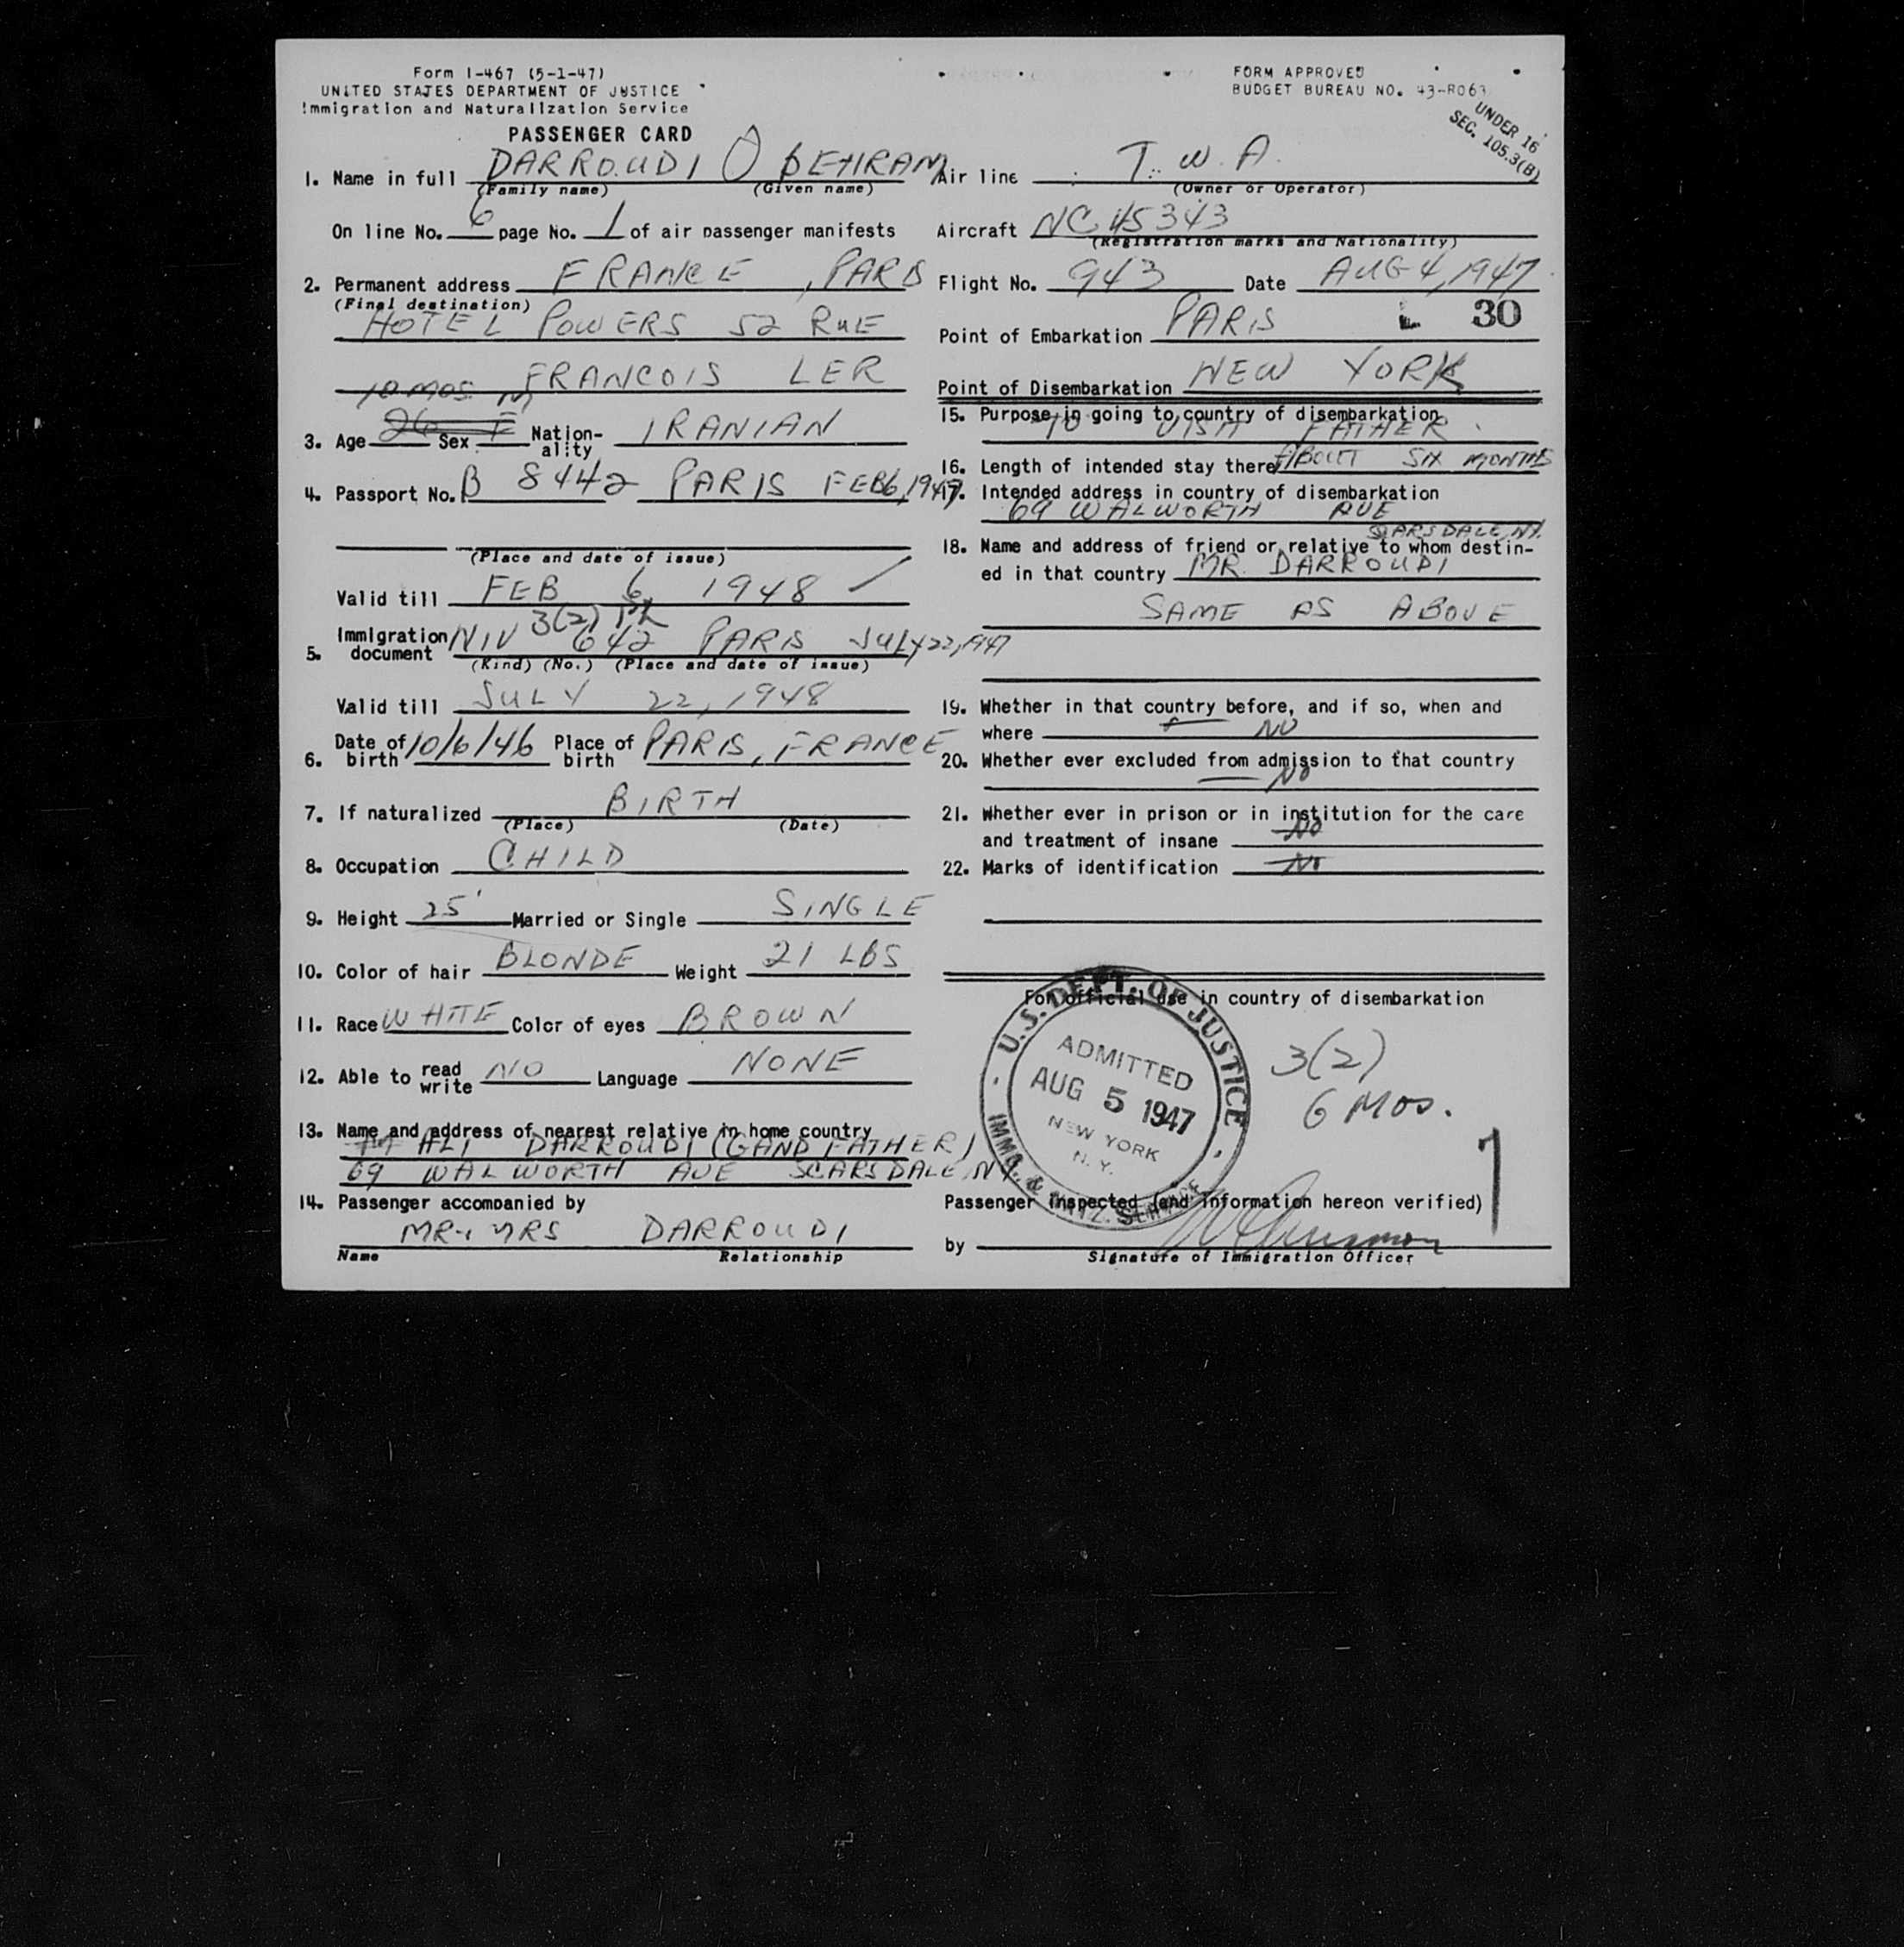 Form I-467 (5-1-47)
UNITED STATES DEPARTMENT OF JUSTICE
Immigration and Naturalization Service
PASSENGER CARD
FORM APPROVED
BUDGET BUREAU NO. 43-R063
UNDER 16
SEC. 105.3(B)
1. Name in full DARROUDI BEHRAM
(Family name) (Given name)
On line No. 6 page No. 1 of air passenger manifests
2. Permanent address FRANCE, PARIS
(Final destination)
HOTEL POWERS 52 RUE
FRANCOIS LER
10 MOS. M
3. Age 26 Sex F Nation-ality IRANIAN
4. Passport No. B 8442 PARIS FEB 6, 1947
(Place and date of issue)
Valid till FEB 6, 1948
3(2)
5. Immigration document NIV 642 PARIS JULY 22, 1947
(Kind) (No.) (Place and date of issue)
Valid till JULY 22, 1948
6. Date of birth 10/6/46 Place of birth PARIS, FRANCE
7. If naturalized BIRTH
(Place) (Date)
8. Occupation CHILD
9. Height 25' Married or Single SINGLE
10. Color of hair BLONDE Weight 21 LBS
11. Race WHITE Color of eyes BROWN
12. Able to read write NO Language NONE
13. Name and address of nearest relative in home country
M ALI DARROUDI (GANDFATHER)
69 WALWORTH AVE SCARSDALE, NY
14. Passenger accompanied by
MR & MRS DARROUDI
Name Relationship
Air line T.W.A.
(Owner or Operator)
Aircraft NC 45343
(Registration marks and Nationality)
Flight No. 943 Date AUG 4, 1947
30
Point of Embarkation PARIS
Point of Disembarkation NEW YORK
15. Purpose in going to country of disembarkation
TO VISIT FATHER
16. Length of intended stay there ABOUT SIX MONTHS
17. Intended address in country of disembarkation
69 WALWORTH AVE
SCARSDALE, NY.
18. Name and address of friend or relative to whom destin-
ed in that country MR. DARROUDI
SAME AS ABOVE
19. Whether in that country before, and if so, when and
where NO
20. Whether ever excluded from admission to that country
NO
21. Whether ever in prison or in institution for the care
and treatment of insane NO
22. Marks of identification NO
For official use in country of disembarkation
U.S. DEPT. OF JUSTICE
ADMITTED
AUG 5 1947
NEW YORK
N.Y.
IMMG. & NATZ. SERVICE
3(2)
6 MOS.
Passenger inspected (and information hereon verified)
by
Signature of Immigration Officer